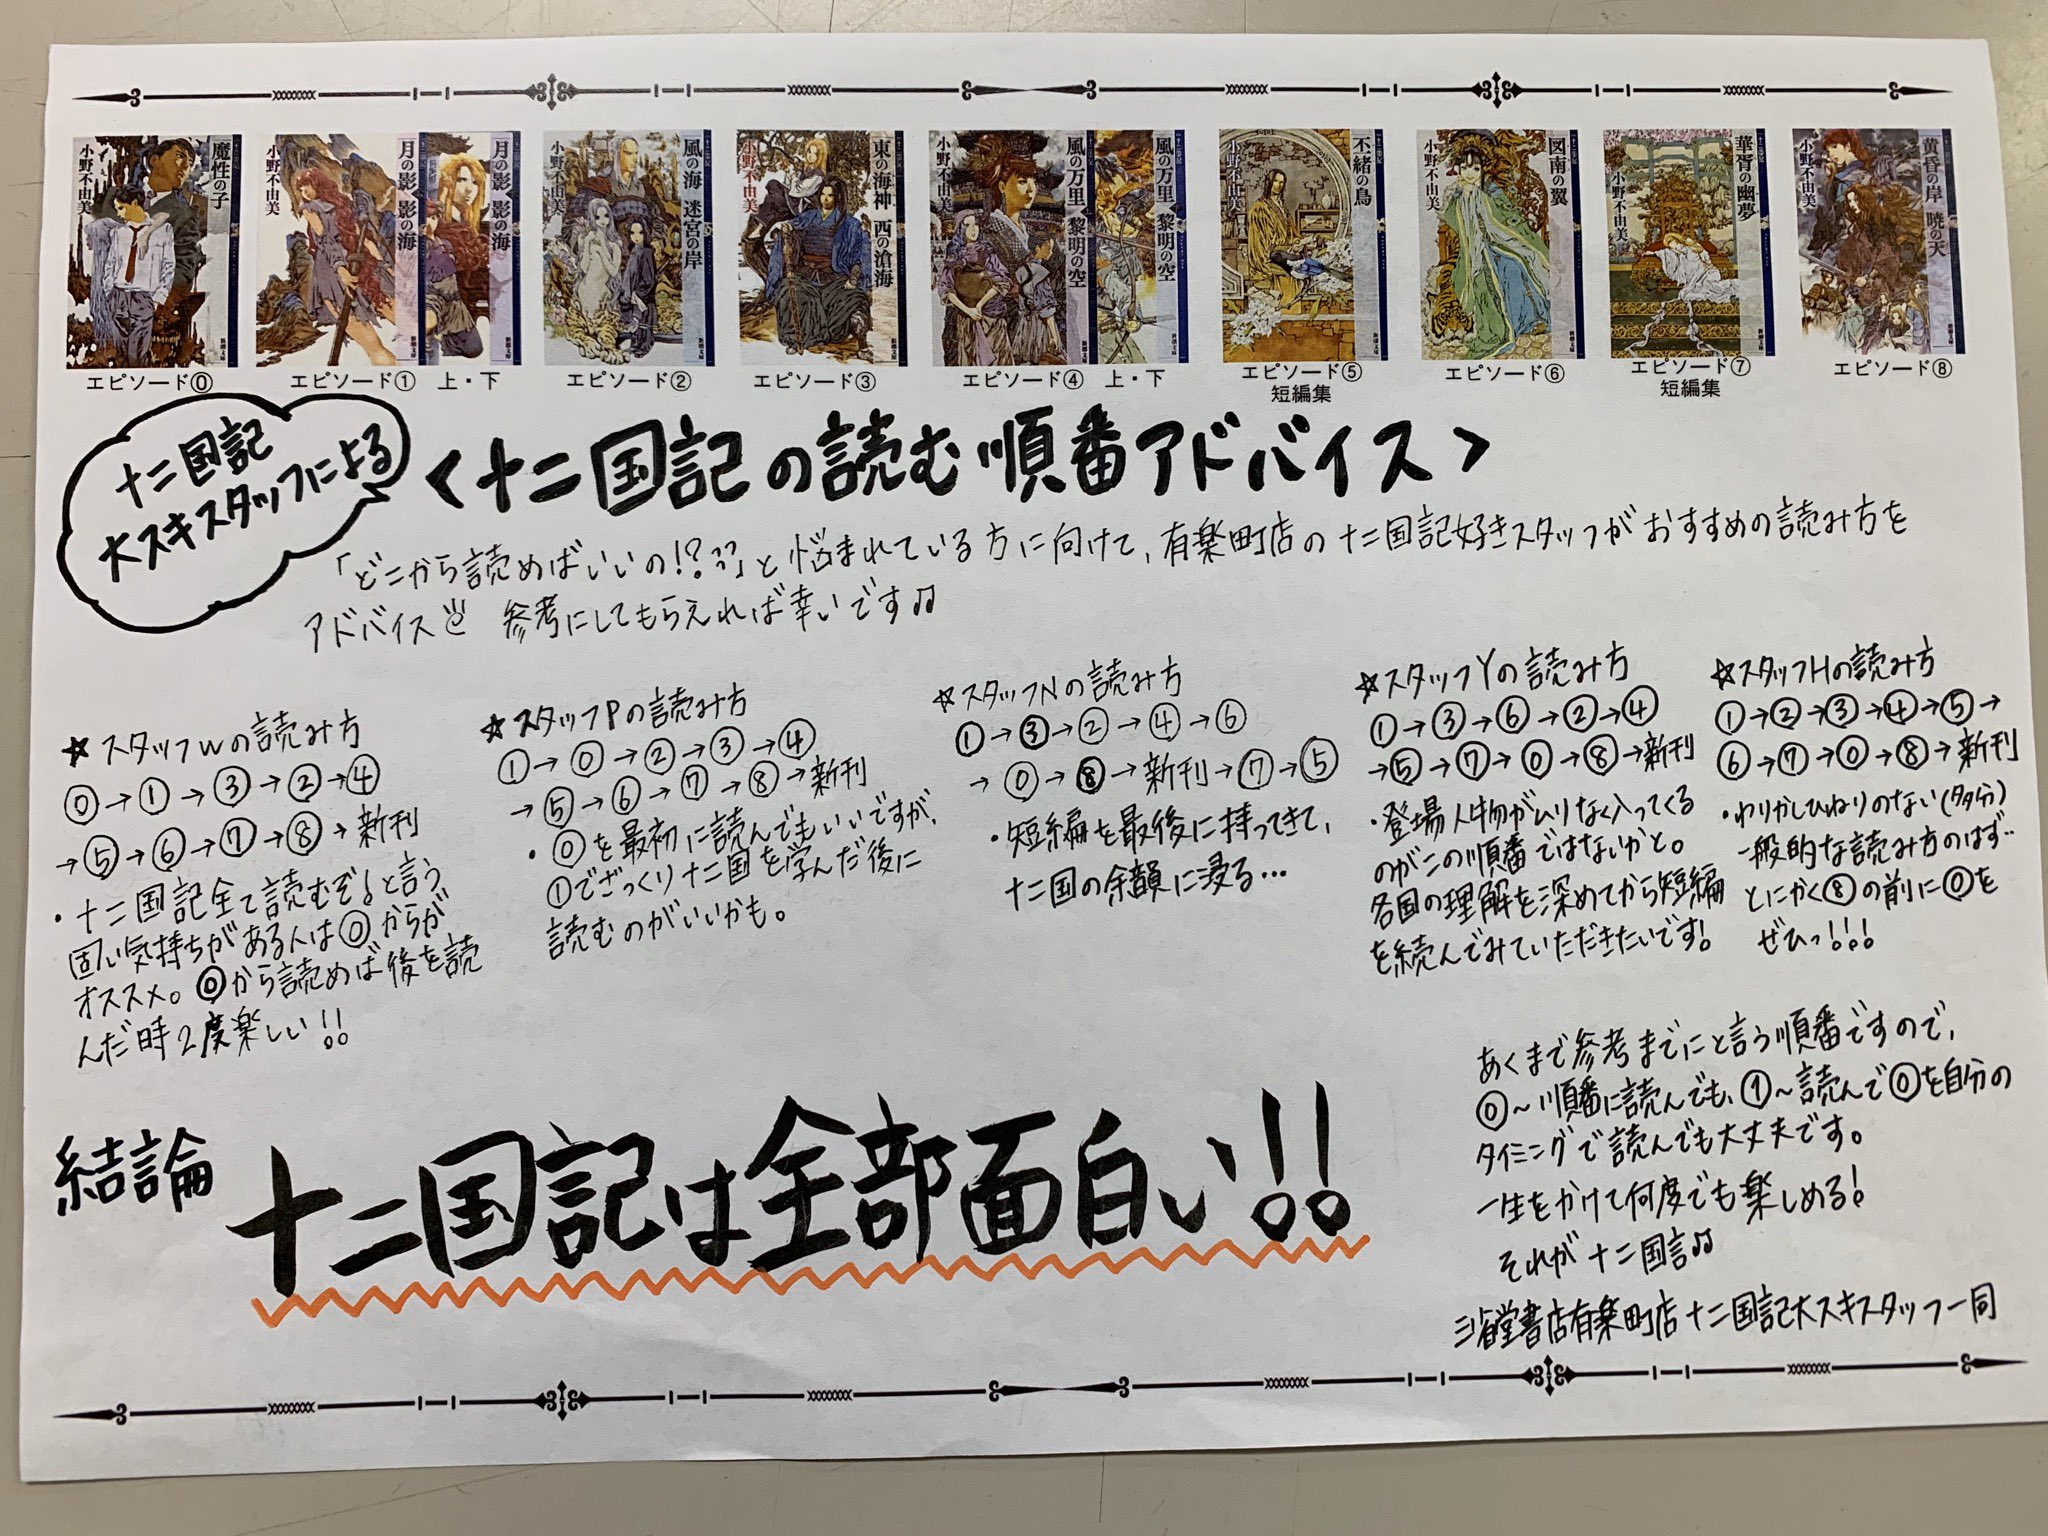 魔性の子
小野不由美
月の影 影の海
小野不由美
月の影 影の海
風の海 迷宮の岸
小野不由美
東の海神 西の滄海
小野不由美
風の万里 黎明の空
小野不由美
風の万里 黎明の空
丕緒の鳥
小野不由美
図南の翼
小野不由美
華胥の幽夢
小野不由美
黄昏の岸 暁の天
小野不由美
エピソード⓪
エピソード① 上・下
エピソード②
エピソード③
エピソード④ 上・下
エピソード⑤
短編集
エピソード⑥
エピソード⑦
短編集
エピソード⑧
十二国記
大スキスタッフによる
<十二国記の読む順番アドバイス>
「どこから読めばいいの!???」と悩まれている方に向けて、有楽町店の十二国記好きスタッフがおすすめの読み方を
アドバイス 参考にしてもらえれば幸いです♫
☆スタッフWの読み方
⓪→①→③→②→④
→⑤→⑥→⑦→⑧→新刊
・十二国記全て読むぞ!と言う
固い気持ちがある人は⓪からが
オススメ。⓪から読めば後を読
んだ時2度楽しい!!
☆スタッフPの読み方
①→⓪→②→③→④
→⑤→⑥→⑦→⑧→新刊
・⓪を最初に読んでもいいですが、
①でざっくり十二国を学んだ後に
読むのがいいかも。
☆スタッフNの読み方
①→③→②→④→⑥
→⓪→⑧→新刊→⑦→⑤
・短編を最後に持ってきて、
十二国の余韻に浸る…
☆スタッフYの読み方
①→③→⑥→②→④
→⑤→⑦→⓪→⑧→新刊
・登場人物がムリなく入ってくる
のがこの順番ではないかと。
各国の理解を深めてから短編
を続んでみていただきたいです!
☆スタッフHの読み方
①→②→③→④→⑤→
⑥→⑦→⓪→⑧→新刊
・わりかしひねりのない(多分)
一般的な読み方のはず…
とにかく⑧の前に⓪を
ぜひっ!!!
あくまで参考までにと言う順番ですので、
⓪～順番に読んでも、①～読んで⓪を自分の
タイミングで読んでも大丈夫です。
一生をかけて何度でも楽しめる!
それが十二国記♫
三省堂書店有楽町店十二国記大スキスタッフ一同
結論
十二国記は全部面白い!!